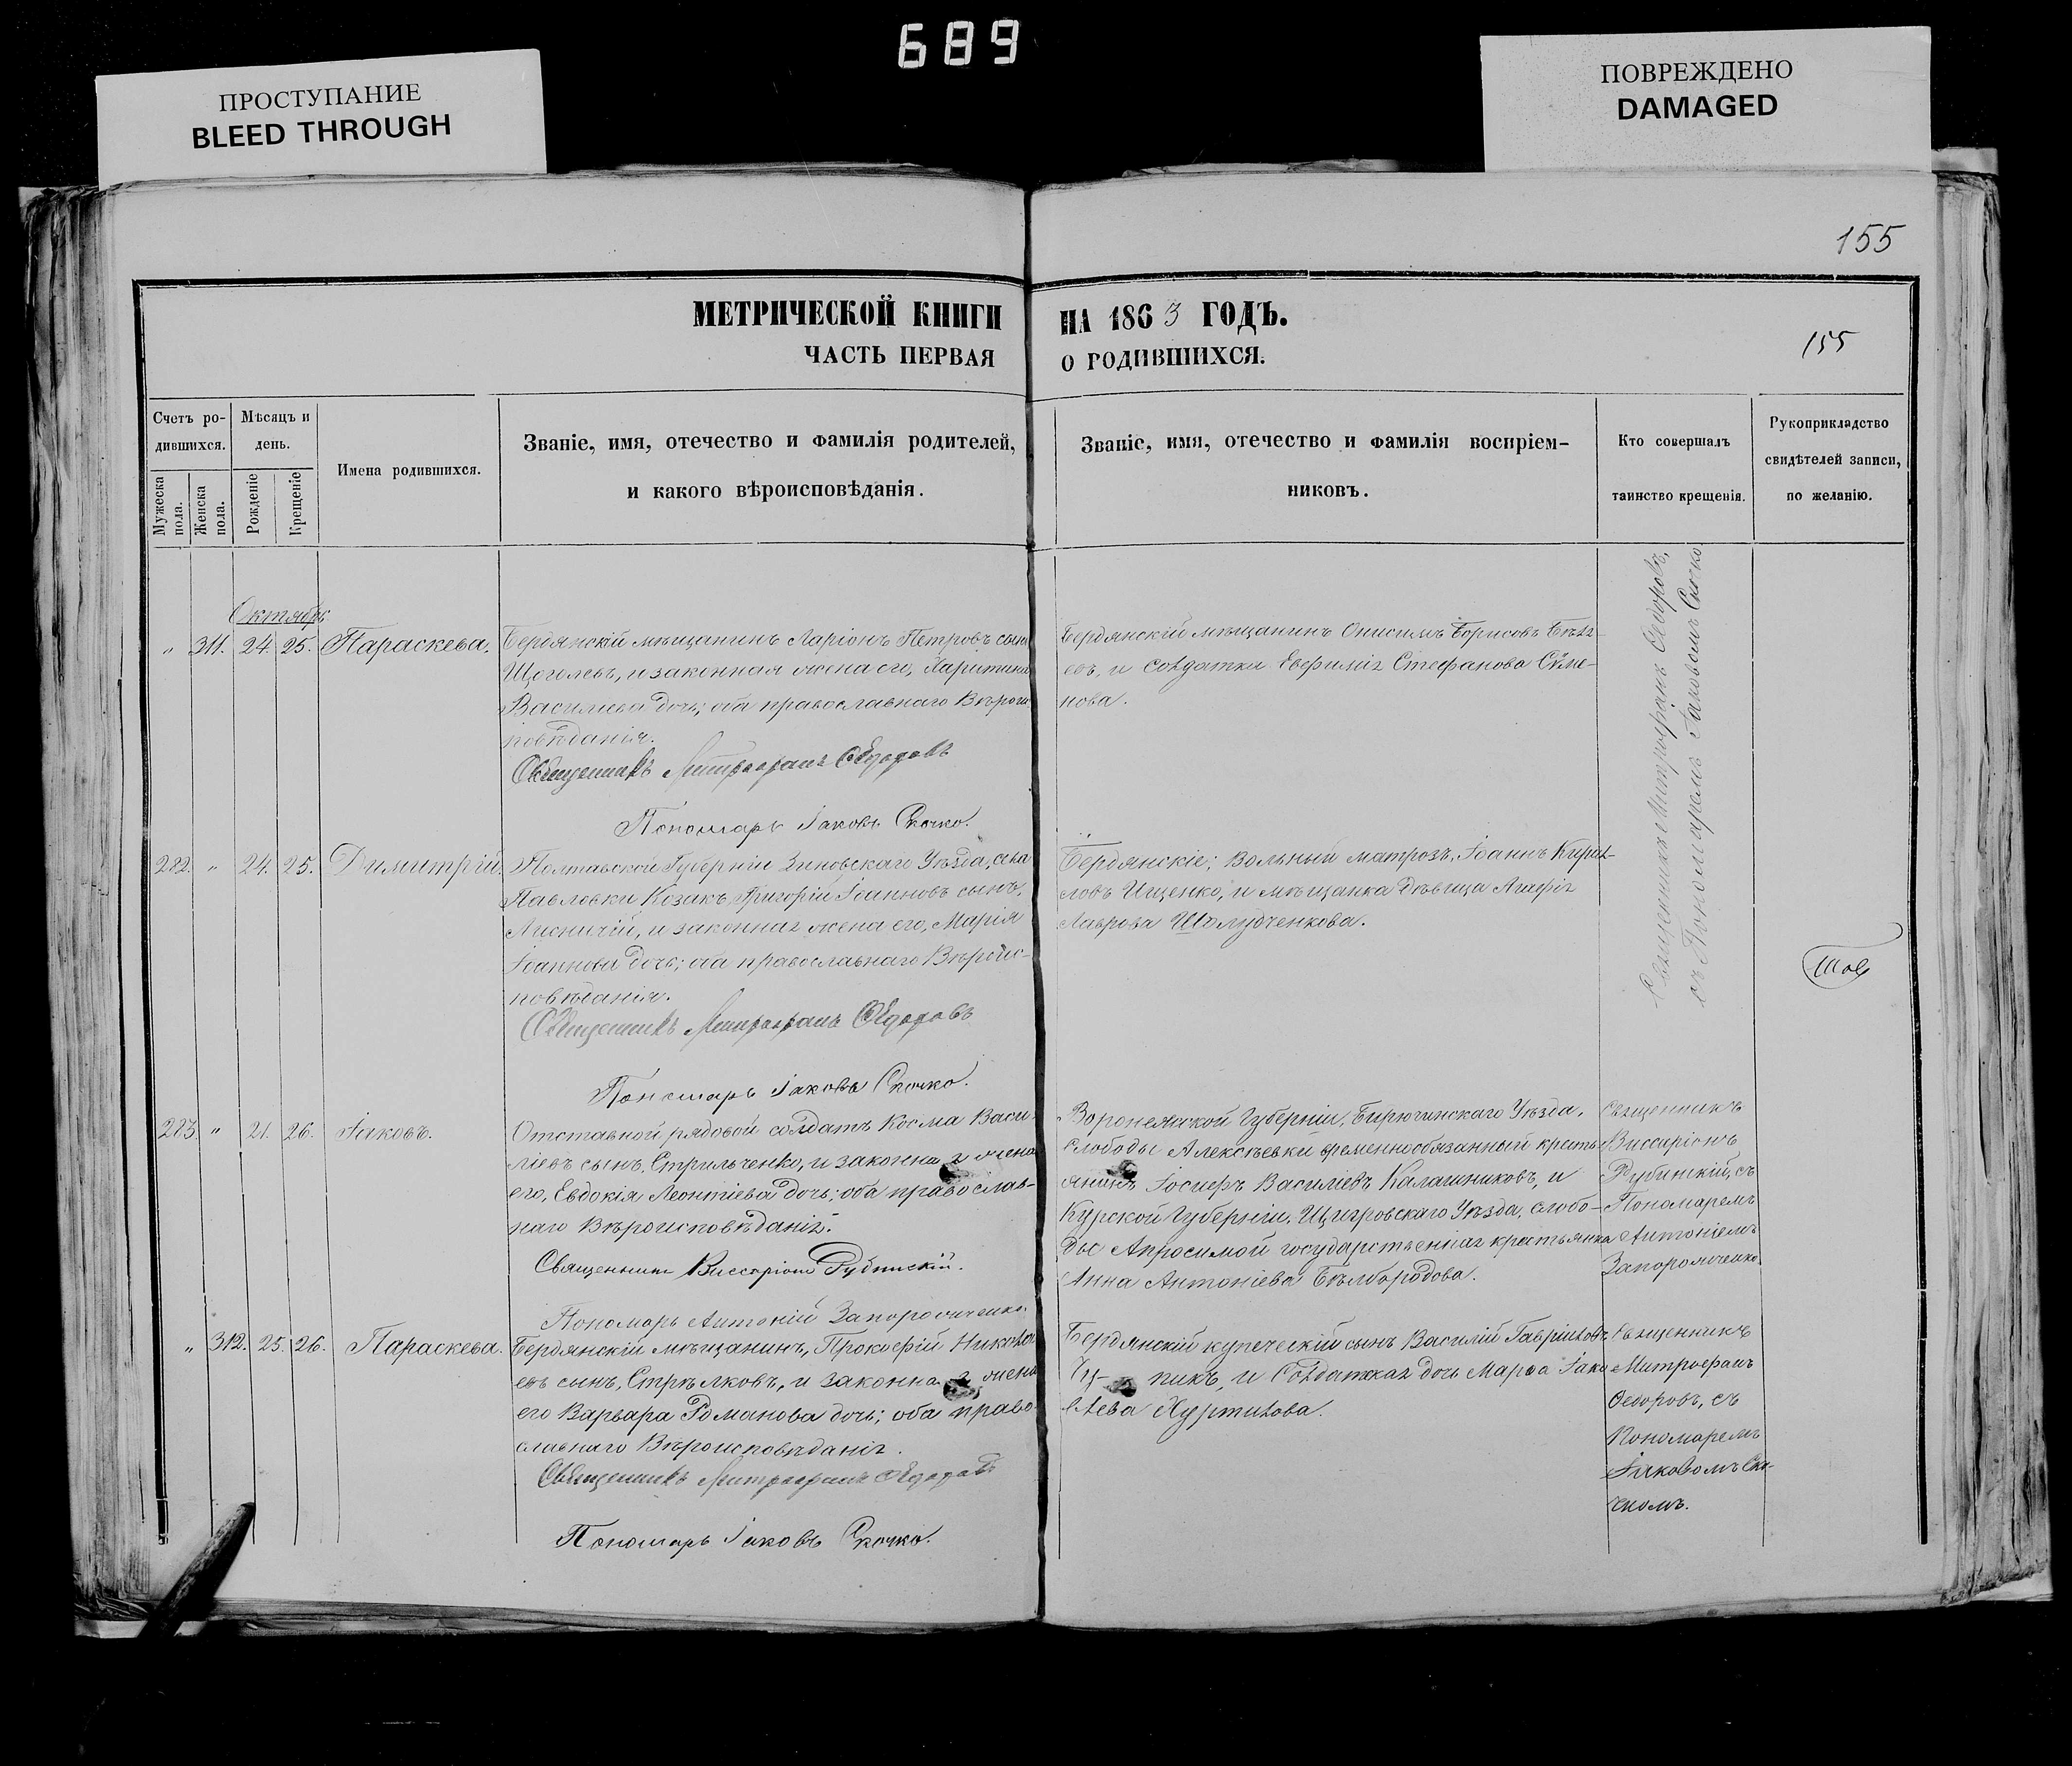 689
ПРОСТУПАНИЕ
BLEED THROUGH
ПОВРЕЖДЕНО
DAMAGED
155
МЕТРИЧЕСКОЙ КНИГИ НА 1863 ГОДЪ.
ЧАСТЬ ПЕРВАЯ О РОДИВШИХСЯ.
155
Счетъ ро-
дившихся.
Мужеска пола.
Женска пола.
Мѣсяцъ и
день.
Рожденіе
Крещеніе
Имена родившихся.
Званіе, имя, отечество и фамилія родителей,
и какого вѣроисповѣданія.
Званіе, имя, отечество и фамилія воспріем-
никовъ.
Кто совершалъ
таинство крещенія.
Рукоприкладство
свидѣтелей записи,
по желанію.
Октябрь
" 311. 24. 25. Параскева.
Бердянскій мѣщанинъ Ларіонъ Петровъ сынъ
Щоголевъ, и законная жена его, Харитина
Василіева дочь; оба православнаго Вѣрои
повѣданія.
Священникъ Митрофанъ Ѳедоровъ
Пономарь Іаковъ Скочко.
Бердянскій мѣщанинъ Онисимъ Борисовъ Бѣля-
евъ, и солдатка Евфимія Стефанова Симе-
нова.
Священникъ Митрофанъ Ѳедоровъ,
съ Пономаремъ Іаковомъ Скочко
282. " 24. 25. Димитрій.
Полтавской Губерніи Зиновскаго Уѣзда, села
Павловки Козакъ, Григорій Іоанновъ сынъ,
Лисничій, и законная жена его, Марія
Іоаннова дочь; оба православнаго Вѣроис-
повѣданія.
Священникъ Митрофанъ Ѳедоровъ
Пономарь Іаковъ Скочко.
Бердянскіе; вольный матрозъ, Іоаннъ Кирил-
ловъ Ищенко, и мѣщанка дѣвица Агафія
Лаврова Шолудченкова.
283. " 21. 26. Іаковъ.
Отставной рядовой солдатъ Косма Васи-
ліевъ сынъ, Стрильченко, и законная жена
его, Евдокія Леонтіева дочь; оба православ-
наго Вѣроисповѣданія.
Священникъ Виссаріонъ Рубинскій.
Пономарь Антоній Запорожченко.
Воронежской Губерніи, Бирючинскаго Уѣзда,
Слободы Алексѣевки временнообязанный кресть-
янинъ Іосифъ Василіевъ Калашниковъ, и
Курской Губерніи, Щигровскаго Уѣзда, слобо-
ды Апросимой государственная крестьянка
Анна Антоніева Бѣлбородова.
Священникъ
Виссаріонъ
Рубинскій, съ
Пономаремъ
Антоніемъ
Запорожченко.
" 312. 25. 26. Параскева.
Бердянскій мѣщанинъ, Прокофій Никола
евъ сынъ, Стрѣлковъ, и законная жена
его Варвара Романова дочь; оба право-
славнаго Вѣроисповѣданія.
Священникъ Митрофанъ Ѳедоровъ
Пономарь Іаковъ Скочко.
Бердянскій купеческій сынъ Василій Гавріиловъ
пикъ, и Солдатская дочь Марѳа Іако
влева Хурпилова.
Священникъ
Митрофанъ
Ѳедоровъ, съ
Пономаремъ
Іаковомъ Ско-
чкомъ.